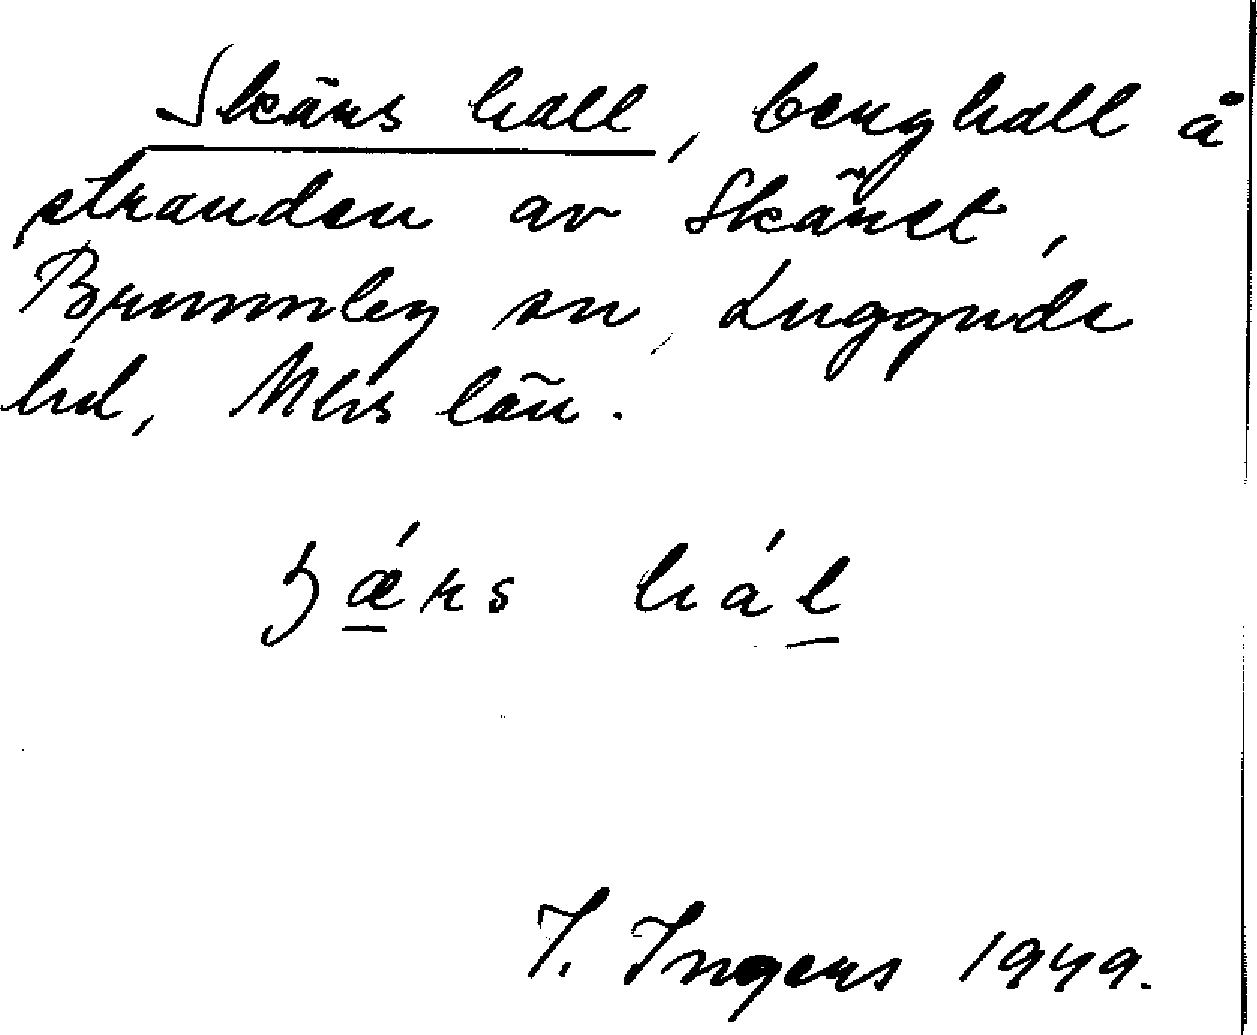 Skärs hall, berghall å
stranden av Skäret,
Brunnby sn, Luggude
hd, Mhs län.
ʒǽrs hál
I. Ingers 1949.